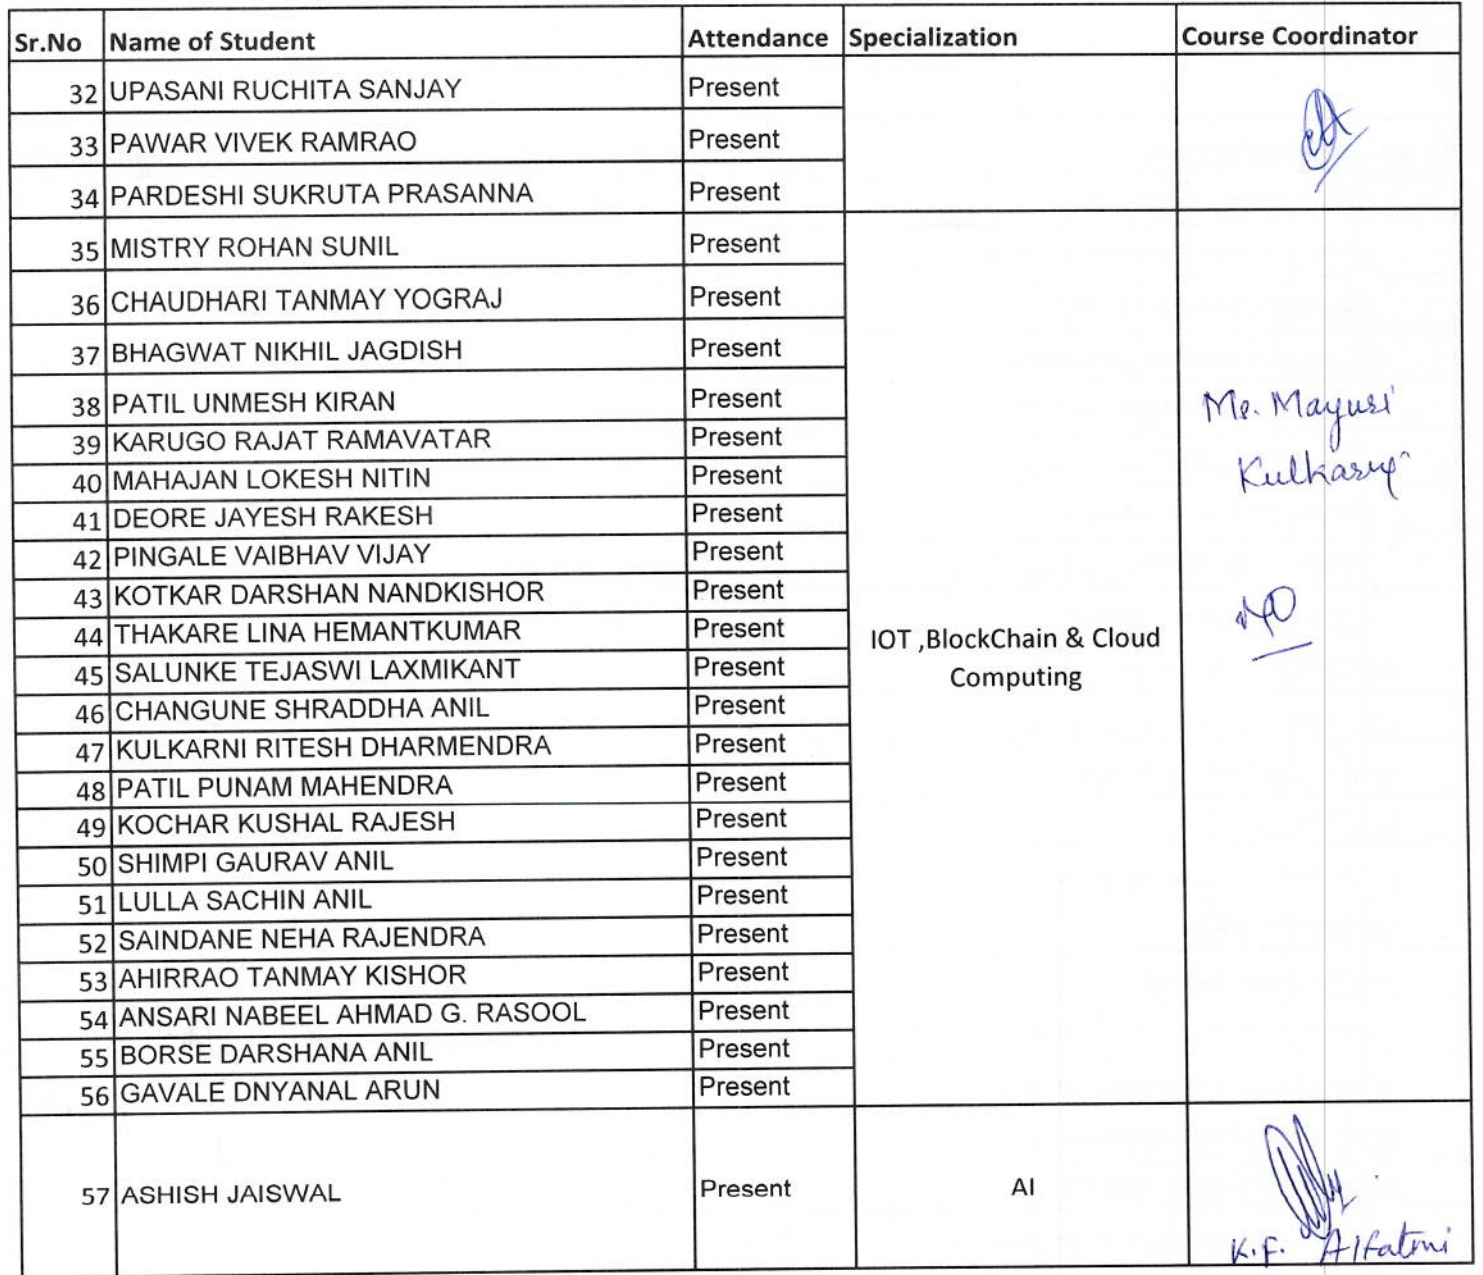 Sr.No Name of Student Attendance Specialization Course Coordinator
32 UPASANI RUCHITA SANJAY Present
33 PAWAR VIVEK RAMRAO Present
34 PARDESHI SUKRUTA PRASANNA Present
35 MISTRY ROHAN SUNIL Present
36 CHAUDHARI TANMAY YOGRAJ Present
37 BHAGWAT NIKHIL JAGDISH Present
38 PATIL UNMESH KIRAN Present
39 KARUGO RAJAT RAMAVATAR Present
40 MAHAJAN LOKESH NITIN Present
41 DEORE JAYESH RAKESH Present
42 PINGALE VAIBHAV VIJAY Present
43 KOTKAR DARSHAN NANDKISHOR Present
44 THAKARE LINA HEMANTKUMAR Present
45 SALUNKE TEJASWI LAXMIKANT Present
46 CHANGUNE SHRADDHA ANIL Present
47 KULKARNI RITESH DHARMENDRA Present
48 PATIL PUNAM MAHENDRA Present
49 KOCHAR KUSHAL RAJESH Present
50 SHIMPI GAURAV ANIL Present
51 LULLA SACHIN ANIL Present
52 SAINDANE NEHA RAJENDRA Present
53 AHIRRAO TANMAY KISHOR Present
54 ANSARI NABEEL AHMAD G. RASOOL Present
55 BORSE DARSHANA ANIL Present
56 GAVALE DNYANAL ARUN Present
IOT ,BlockChain & Cloud
Computing
Mayuri
Kulkarni
57 ASHISH JAISWAL Present AI
K.F. Alfatmi